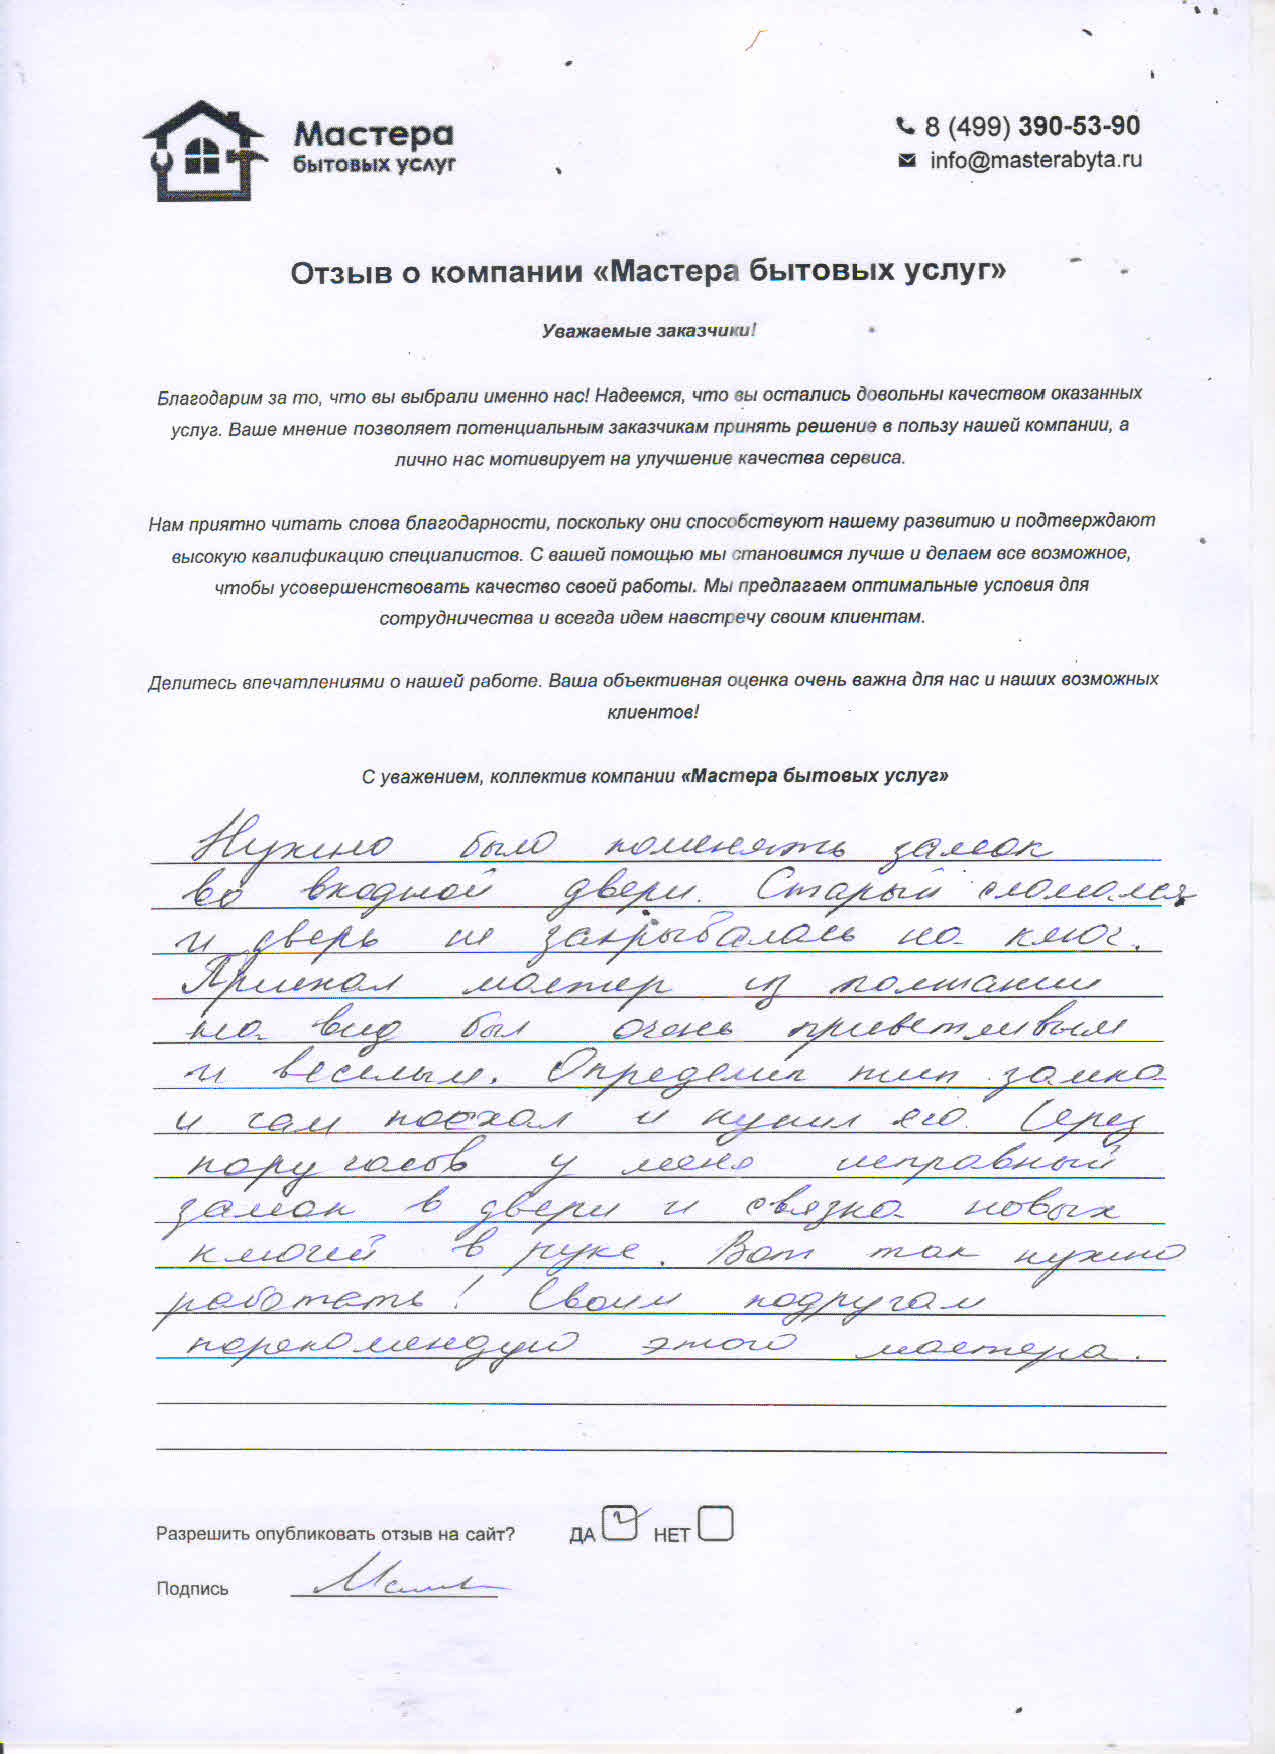 Мастера
бытовых услуг
8 (499) 390-53-90
info@masterabyta.ru
Отзыв о компании «Мастера бытовых услуг»
Уважаемые заказчики!
Благодарим за то, что вы выбрали именно нас! Надеемся, что вы остались довольны качеством оказанных
услуг. Ваше мнение позволяет потенциальным заказчикам принять решение в пользу нашей компании, а
лично нас мотивирует на улучшение качества сервиса.
Нам приятно читать слова благодарности, поскольку они способствуют нашему развитию и подтверждают
высокую квалификацию специалистов. С вашей помощью мы становимся лучше и делаем все возможное,
чтобы усовершенствовать качество своей работы. Мы предлагаем оптимальные условия для
сотрудничества и всегда идем навстречу своим клиентам.
Делитесь впечатлениями о нашей работе. Ваша объективная оценка очень важна для нас и наших возможных
клиентов!
С уважением, коллектив компании «Мастера бытовых услуг»
Нужно было поменять замок
во входной двери. Старый сломался
и дверь не закрывалась на ключ.
Приехал мастер из компании
на вид был очень приветливым
и веселым. Определил тип замка
и сам поехал и купил его. Через
пару часов у меня исправный
замок в двери и связка новых
ключей в руке. Вот так нужно
работать! Своим подругам
порекомендую этого мастера.
Разрешить опубликовать отзыв на сайт? ДА НЕТ
Подпись